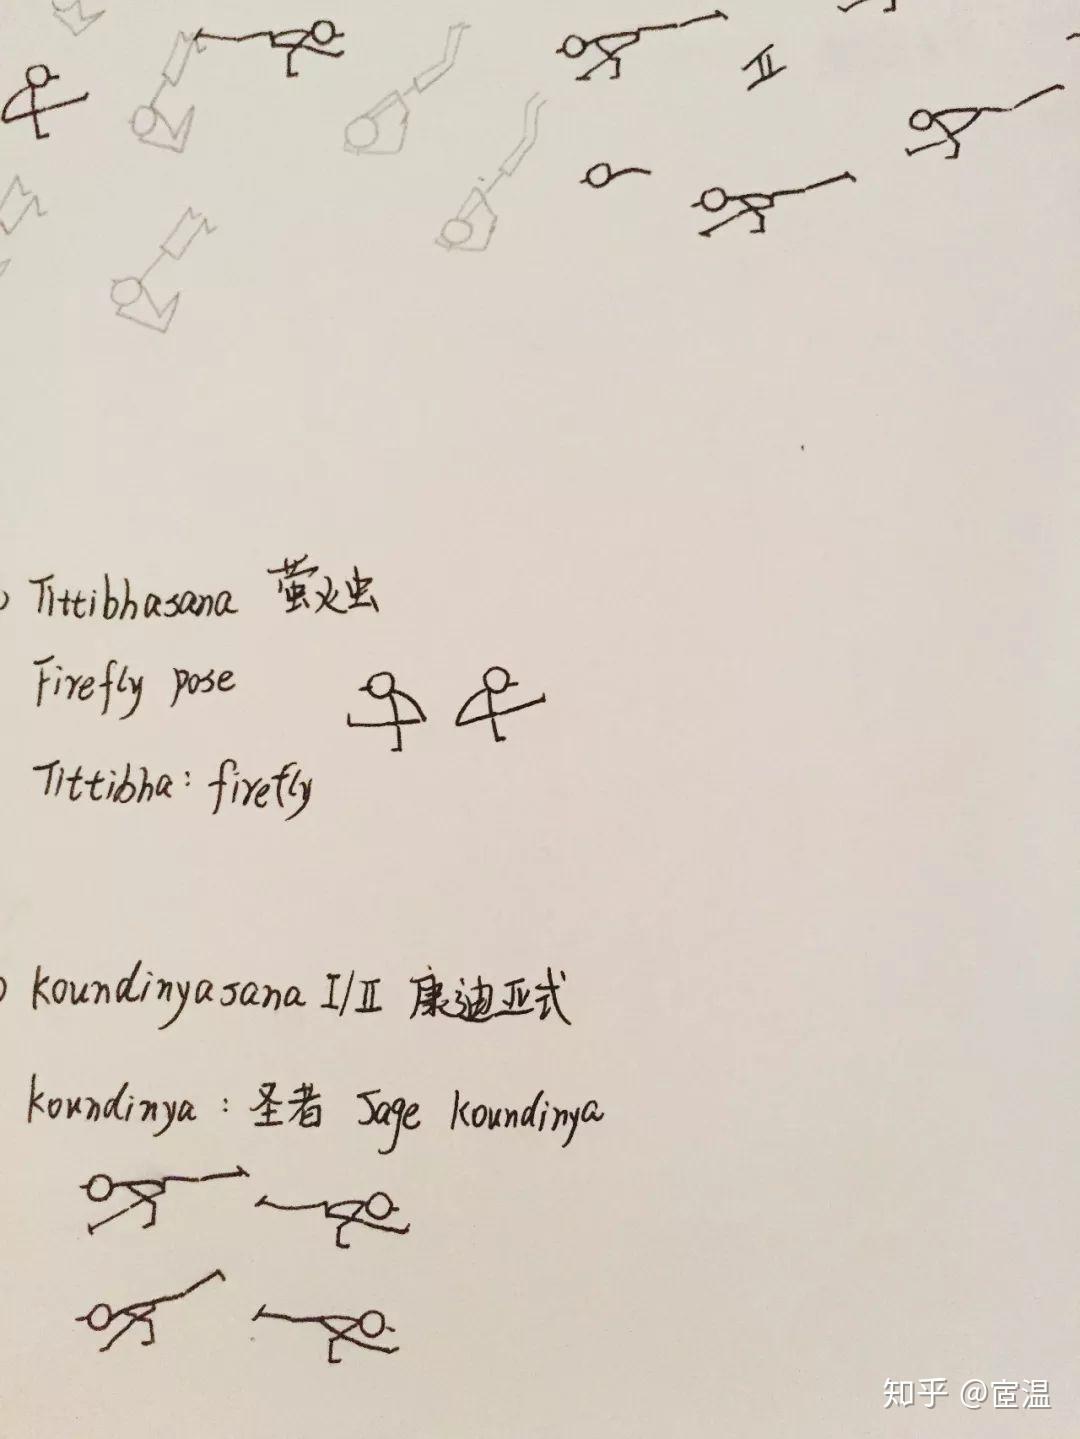 II
Tittibhasana 萤火虫
Firefly pose
Tittibha: firefly
koundinyasana I/II 康迪亚式
koundinya : 圣者 Sage koundinya
知乎 @宦温